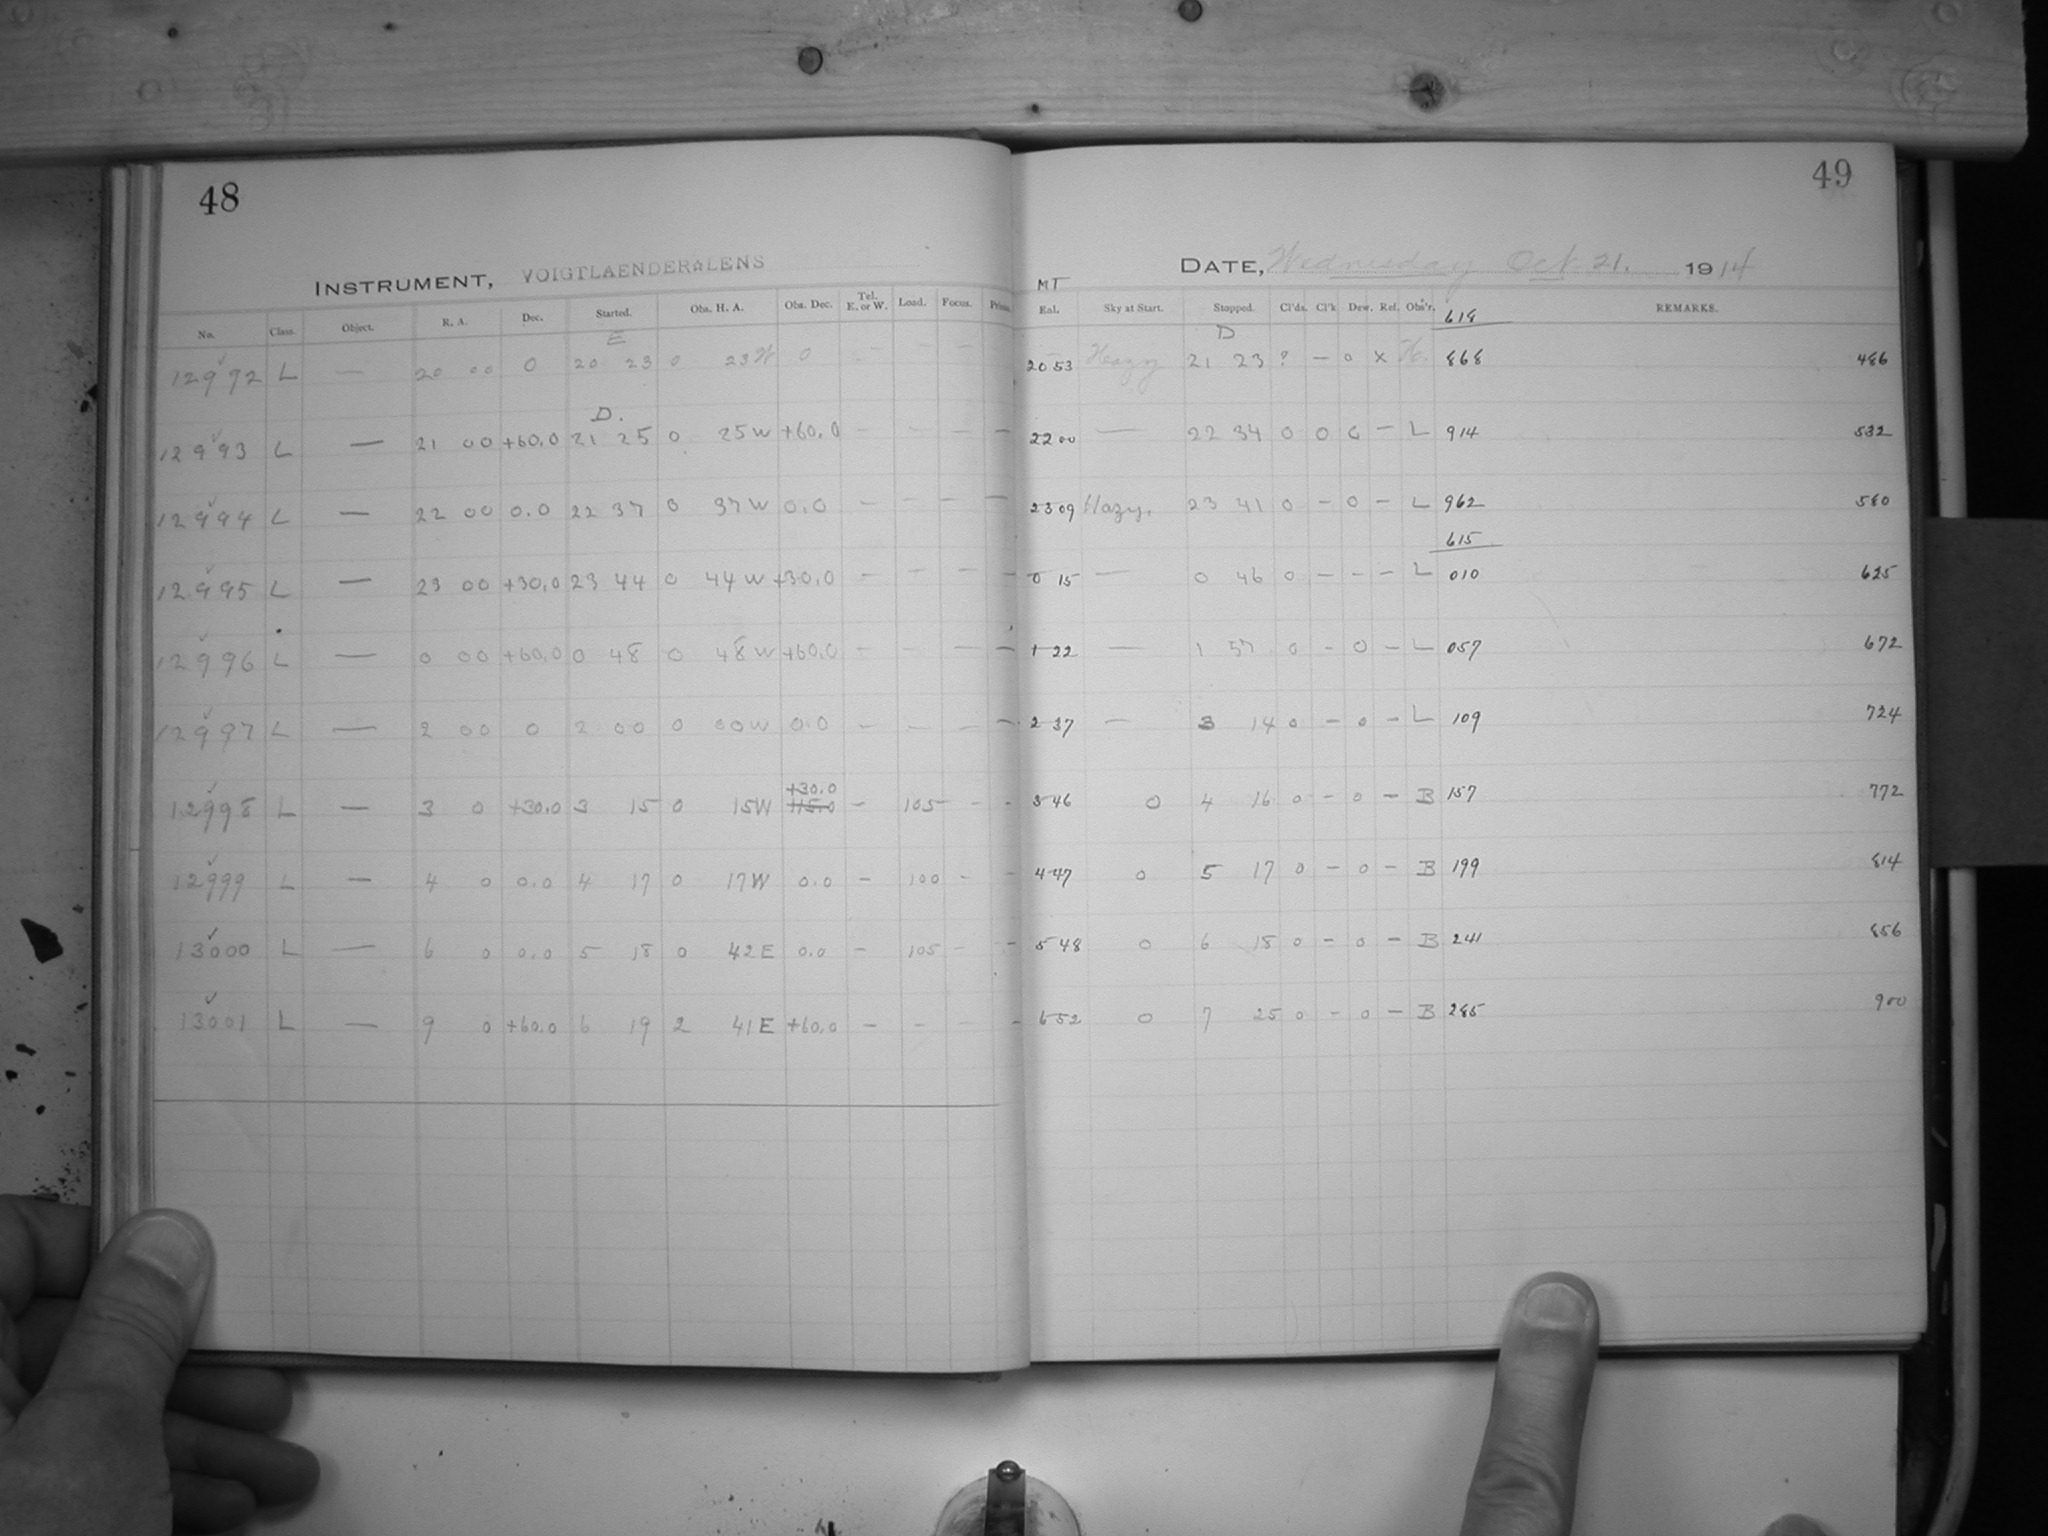 48
INSTRUMENT, VOIGTLAENDER LENS
No. Class. Object. R. A. Dec. Started. Obs. H. A. Obs. Dec. Tel. E. or W. Load. Focus.
E
12992 L — 20 00 0 20 23 0 23W 0 — — —
D.
12993 L — 21 00 +60.0 21 25 0 25W +60.0 — — — —
12994 L — 22 00 0.0 22 37 0 37W 0.0 — — — —
12995 L — 23 00 +30.0 23 44 0 44W +30.0 — — — —
12996 L — 0 00 +60.0 0 48 0 48W +60.0 — — — —
12997 L — 2 00 0 2 00 0 00W 0.0 — — — —
+30.0
12998 L — 3 0 +30.0 3 15 0 15W +15.0 — 105 — —
12999 L — 4 0 0.0 4 17 0 17W 0.0 — 100 — —
13000 L — 6 0 0.0 5 18 0 42E 0.0 — 105 — —
13001 L — 9 0 +60.0 6 19 2 41E +60.0 — — — —
49
DATE, Wednesday Oct. 21. 1914
MT
Eal. Sky at Start. Stopped. Cl'ds. Cl'k Dew. Ref. Obs'r. REMARKS.
618
D
20 53 Hazy 21 23 ? — 0 x H. 868 486
22 00 — 22 34 0 0 0 — L 914 532
23 09 Hazy. 23 41 0 — 0 — L 962 580
615
0 15 — 0 46 0 — — — L 010 625
1 22 — 1 57 0 — 0 — L 057 672
2 37 — 3 14 0 — 0 — L 109 724
3 46 0 4 16 0 — 0 — B 157 772
4 47 0 5 17 0 — 0 — B 199 814
5 48 0 6 18 0 — 0 — B 241 856
6 52 0 7 25 0 — 0 — B 285 900